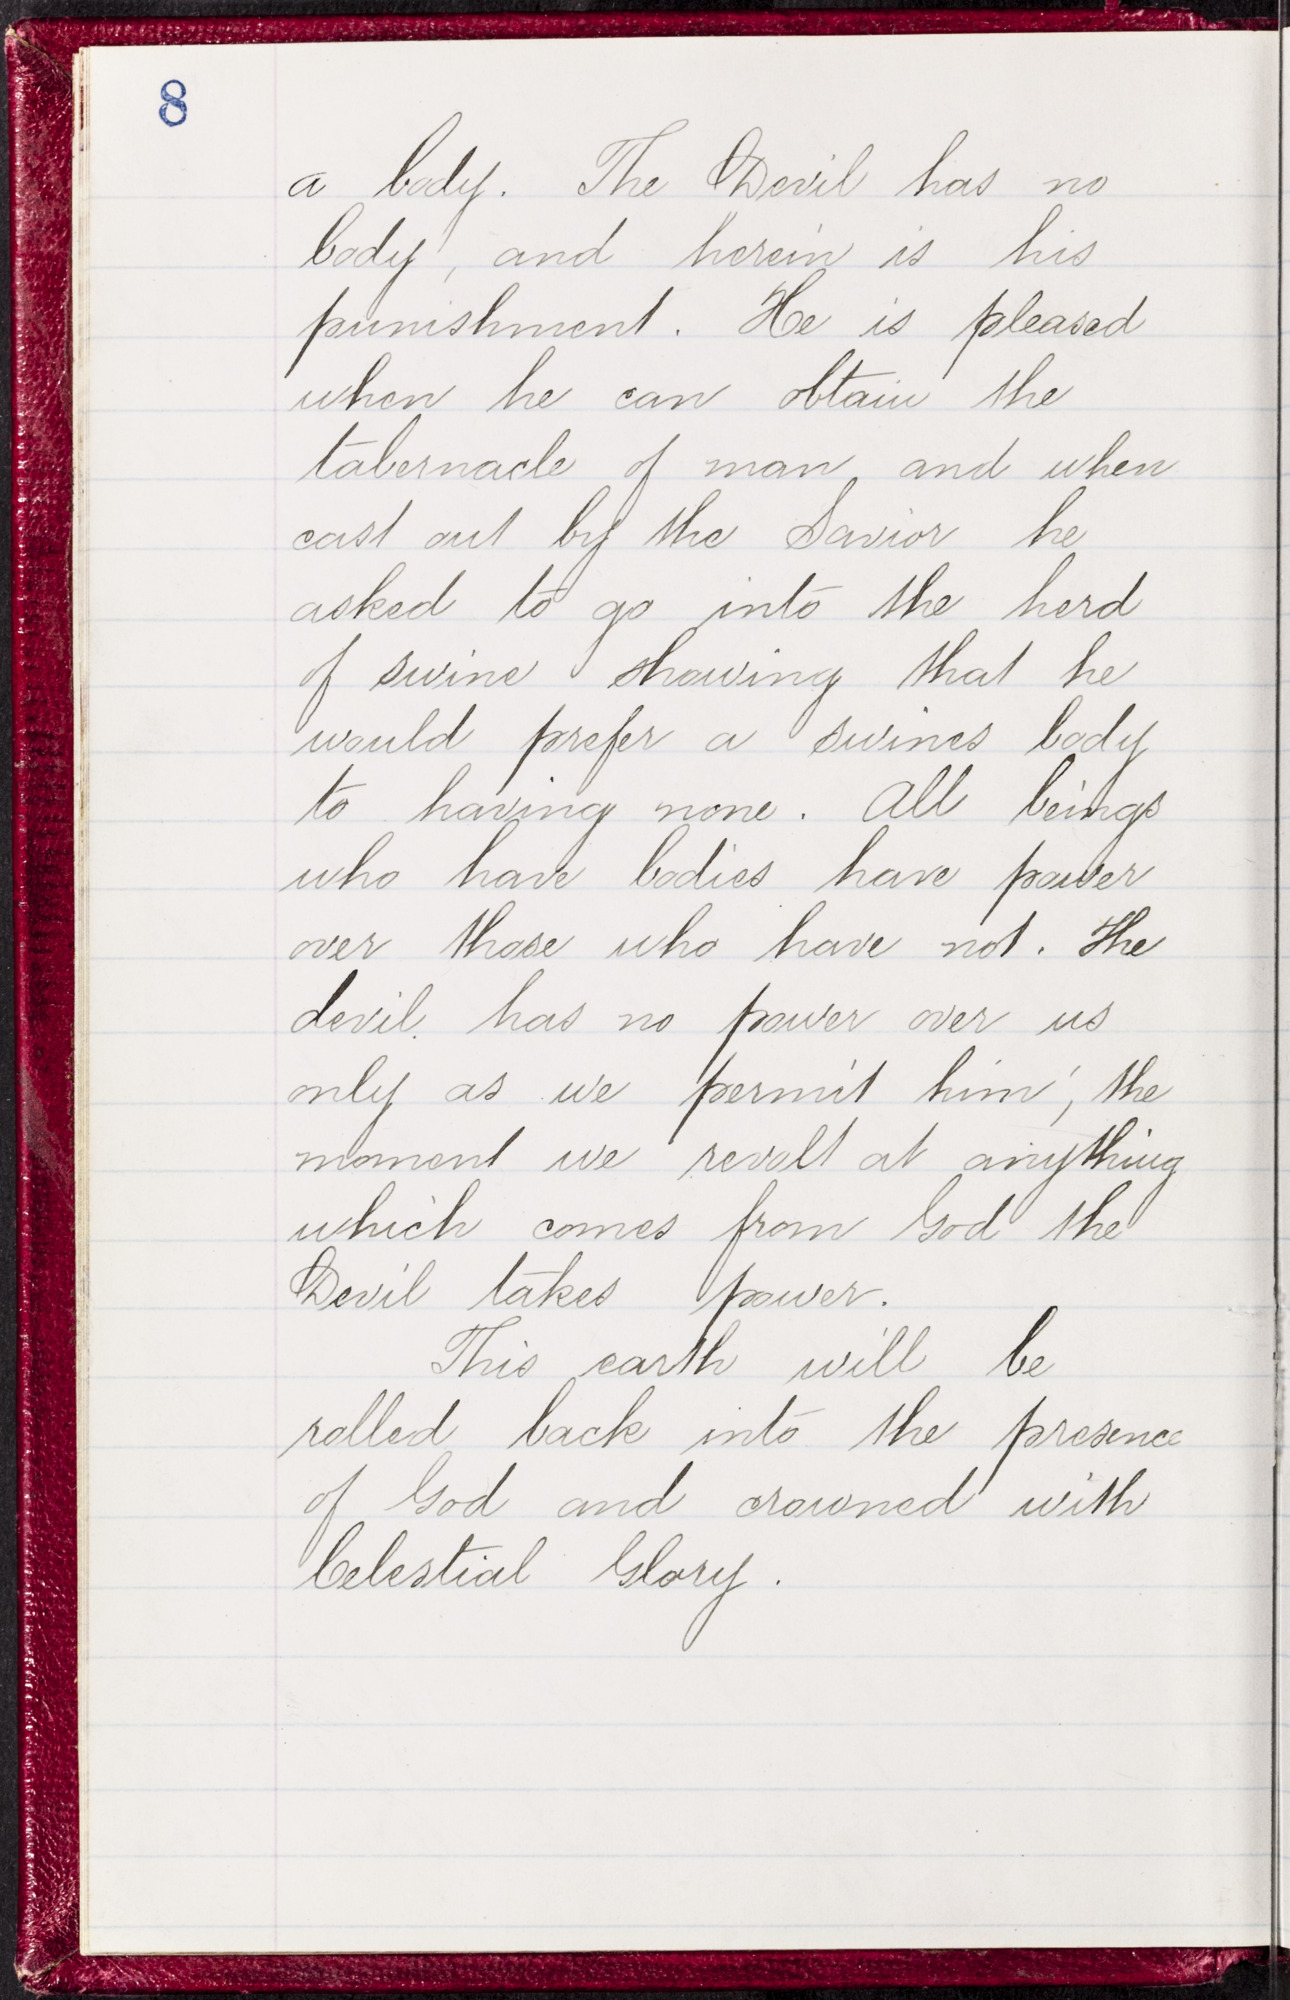 8
a body. The Devil has no
body, and herein is his
punishment. He is pleased
when he can obtain the
tabernacle of man and when
cast out by the Savior he
asked to go into the herd
of swine showing that he
would prefer a swines body
to having none. All beings
who have bodies have power
over those who have not. The
devil has no power over us
only as we permit him; the
moment we revolt at anything
which comes from God the
Devil takes power.
This earth will be
rolled back into the presence
of God and crowned with
Celestial Glory.